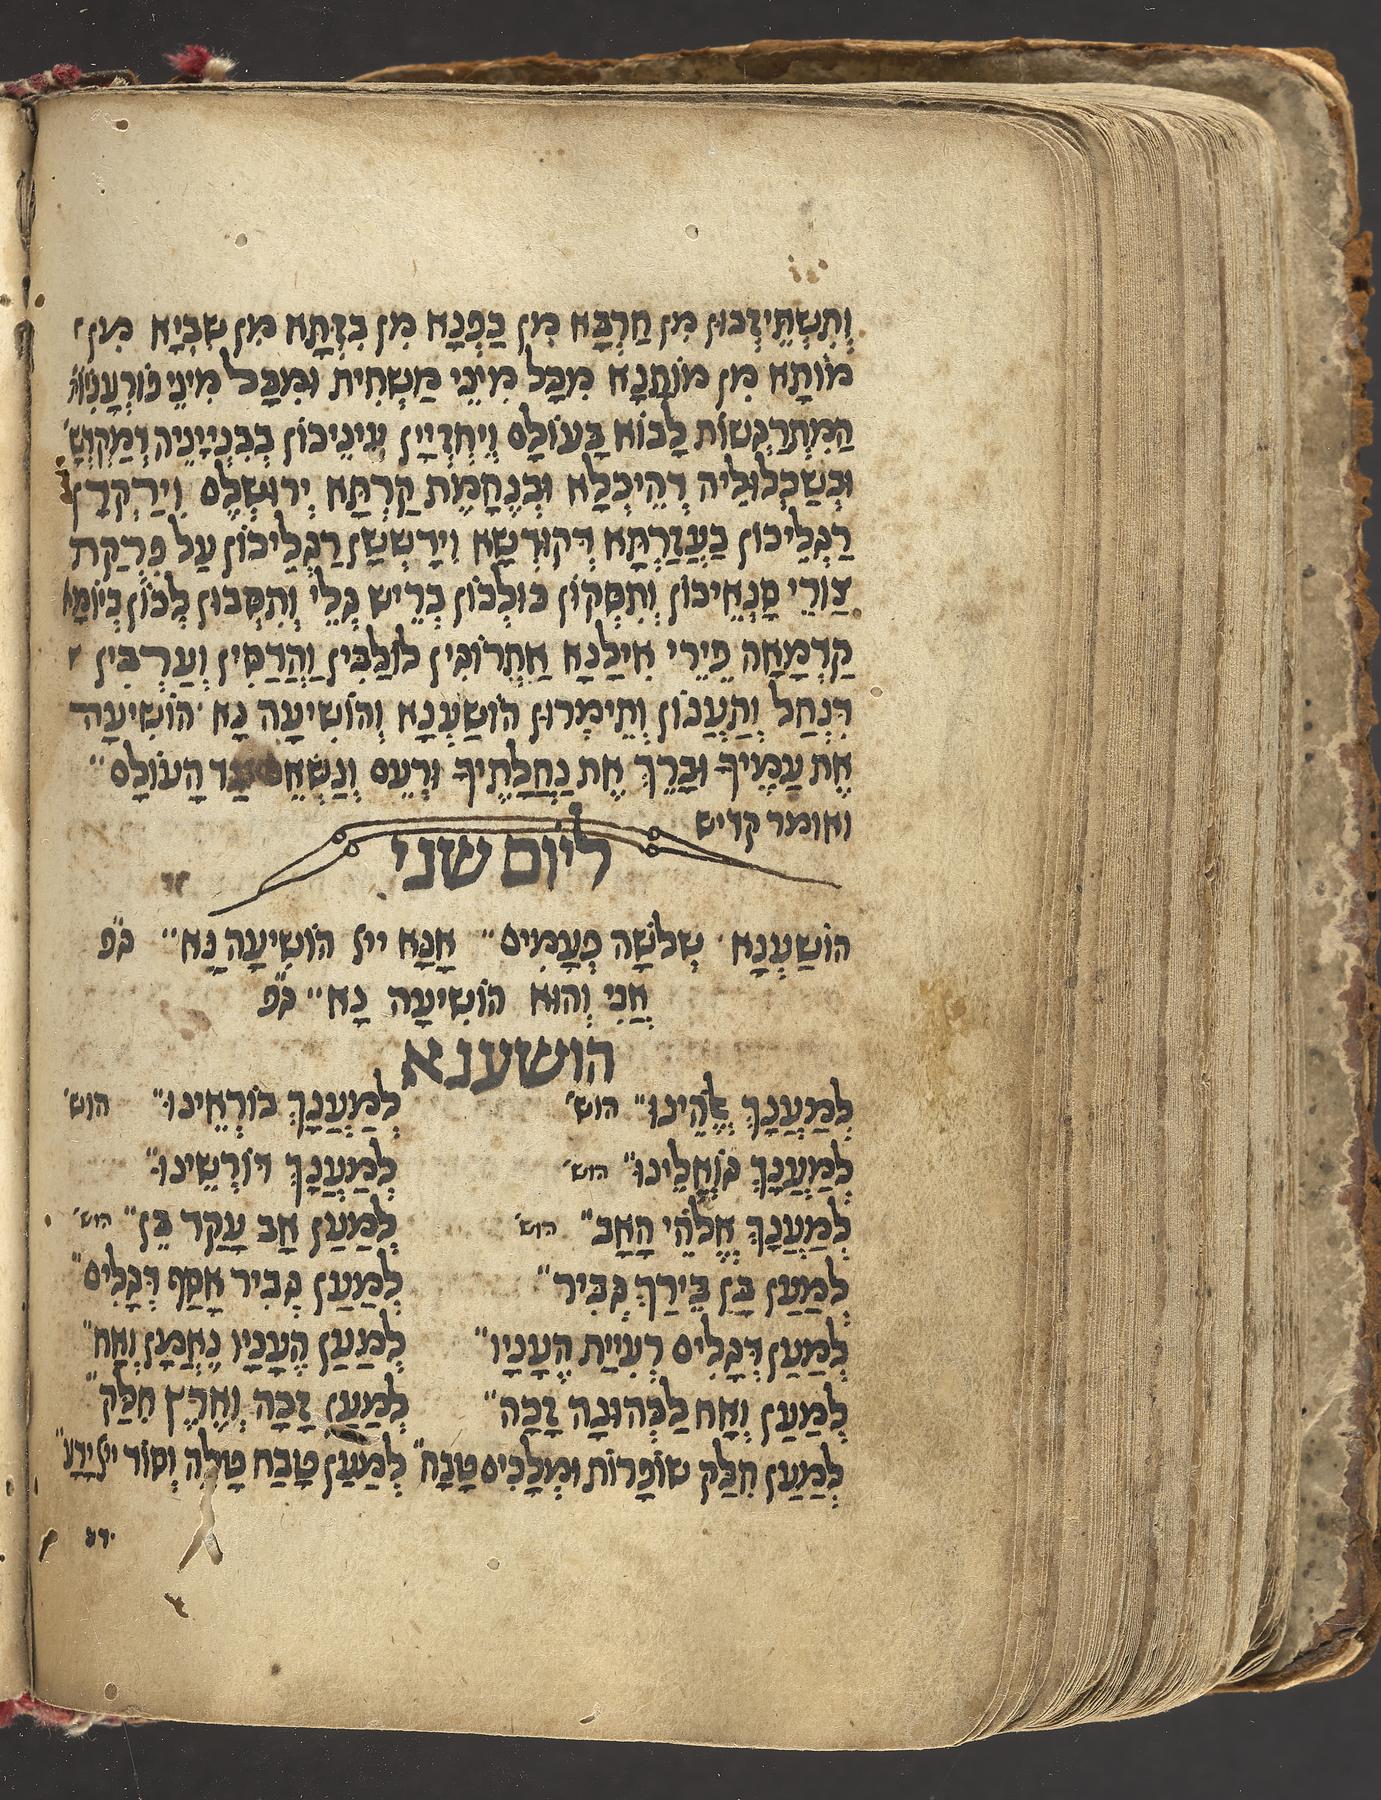 וְתִשְׁתֵּיזְבוּן מִן חַרְבָּא מִן כַּפְנָא מִן בִּזְתָא מִן שִׁבְיָא מִן
מוֹתָא מִן מוֹתָנָא מִכָּל מִינֵי מַשְׁחִית וּמִכָּל מִינֵי פּוּרְעָנִיוֹת
הַמִּתְרַגְּשׁוֹת לָבוֹא בָּעוֹלָם וְיֶחְדְיָין עֵינֵיכוֹן בְּבִנְיָינֵיהּ דְמַקְדְּשָׁ׳
וּבְשַׁכְלוּלֵיהּ דְהֵיכְלָא וּבְנֶחָמַת קַרְתָּא יְרוּשְׁלֶם וִירַקְדָן
רַגְלֵיכוֹן בַּעֲזַרְתָּא דְקוּדְשָׁא וִירָשְׁשַׁן רַגְלֵיכוֹן עַל פִּרְקַת
צַוְרֵי סָנְאֵיכוֹן וְתִסְּקוּן כּוּלְכוֹן בְּרֵישׁ גְּלֵי וְתִסְּבוּן לְכוֹן בְּיוֹמָא
קַדְמָאָה פֵּירֵי אִילָנָא אֶתְרוֹגִין לוּלַבִּין וַהֲדַסִּין וְעַרְבִין
דִּנְחַל וְתַעֲנוּן וְתֵימְרוּן הוֹשַׁעְנָא וְהוֹשִׁיעָה נָּא הוֹשִׁיעָה
אֶת עַמֶּיךָ וּבָרֵךְ אֶת נַחֲלָתֶיךָ וּרְעֵם וְנַשְּׂאֵם עַד הָעוֹלָם
ואומר קדיש
ליום שני
הוֹשַׁעְנָא שְׁלֹשָׁה פְעָמִים אָנָּא ייי הוֹשִׁיעָה נָּא ג״פ
אֲנִי וְהוּא הוֹשִׁיעָה נָא ג״פ
הושענא
לְמַעֲנָךְ אֱלֹהֵינוּ הוש׳ לְמַעֲנָךְ בּוֹרְאֵינוּ הוש׳
לְמַעֲנָךְ גּוֹאֲלֵינוּ הוש׳ לְמַעֲנָךְ דוֹרְשֵׁינוּ
לְמַעֲנָךְ אֱלֹהֵי הָאָב הוש׳ לְמַעַן אָב עָקַד בֵּן הוש׳
לְמַעַן בֵּן בֵּירַךְ גְּבִיר לְמַעַן גְּבִיר אָסַף דְּגָלִים
לְמַעַן דְּגָלִים רְעִיַּת הֶעָנָיו לְמַעַן הֶעָנָיו נֶאֱמָן וְאָח
לְמַעַן וְאָח לַכְּהוּנָה זָכָה לְמַעַן זָכָה וְאֶרֶץ חִלַּק
לְמַעַן חִלַּק שׁוֹפָרוֹת וּמְלָכִים טָבַח לְמַעַן טָבַח טָלֶה וְסוֹד יי׳ יָדַע